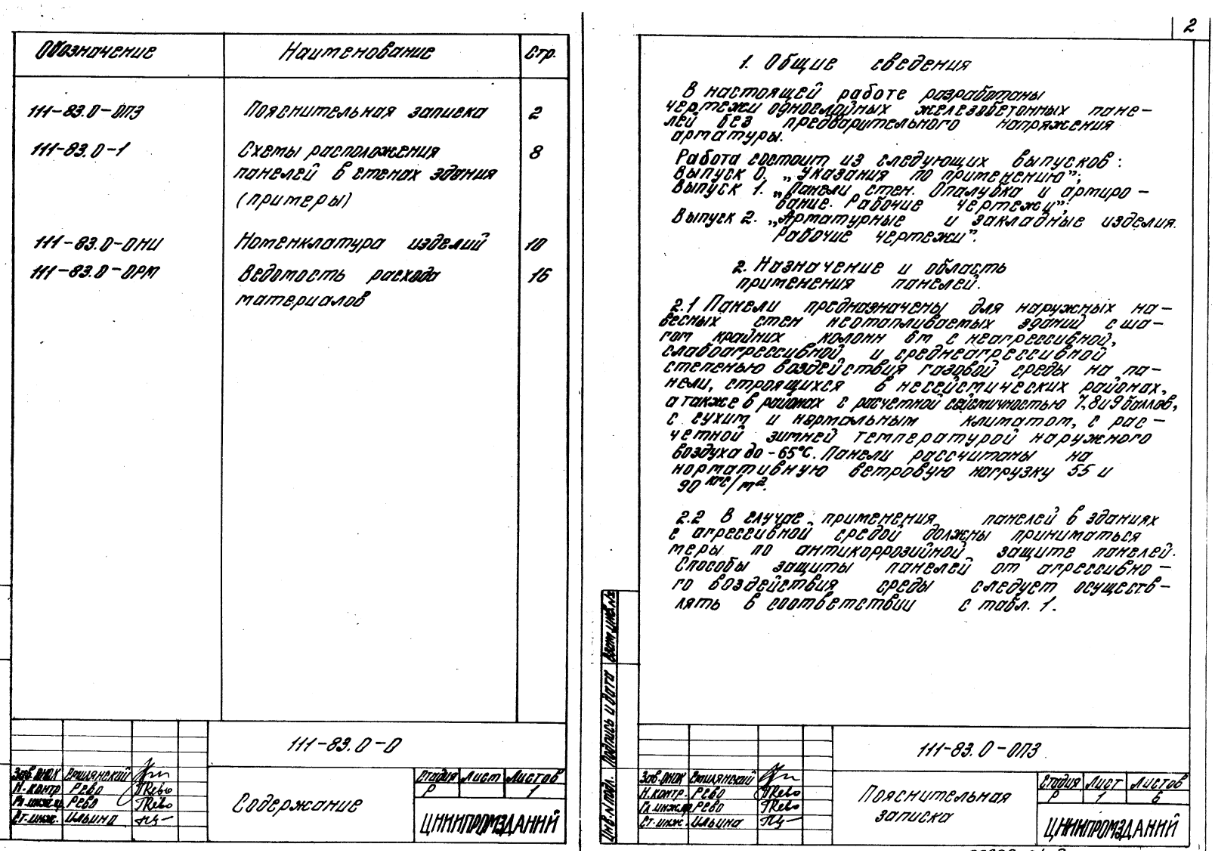 Обозначение Наименование Стр.
111-83.0-ОПЗ Пояснительная записка 2
111-83.0-1 Схемы расположения 8
панелей в стенах здания
(примеры)
111-83.0-ОНИ Номенклатура изделий 10
111-83.0-ОРМ Ведомость расхода 16
материалов
111-83.0-0
Зав. Емилянский
Н. контр. Рево
Гл. инж. Рево
Ст. инж. Ильина
Содержание
Стадия Лист Листов
Р 1
ЦНИИПРОМЗДАНИЙ
2
1. Общие сведения
В настоящей работе разработаны
чертежи однослойных железобетонных пане-
лей без предварительного напряжения
арматуры.
Работа состоит из следующих выпусков:
Выпуск 0. „Указания по применению";
Выпуск 1. „Панели стен. Опалубка и армиро-
вание. Рабочие чертежи";
Выпуск 2. „Арматурные и закладные изделия.
Рабочие чертежи".
2. Назначение и область
применения панелей.
2.1 Панели предназначены для наружных на-
весных стен неотапливаемых зданий с ша-
гом крайних колонн 6м с неагрессивной,
слабоагрессивной и среднеагрессивной
степенью воздействия газовой среды на па-
нели, строящихся в несейсмических районах,
а также в районах с расчетной сейсмичностью 7,8и9 баллов,
с сухим и нормальным климатом, с рас-
четной зимней температурой наружного
воздуха до -65°С. Панели рассчитаны на
нормативную ветровую нагрузку 55 и
90 кгс/м².
2.2 В случае применения панелей в зданиях
с агрессивной средой должны приниматься
меры по антикоррозийной защите панелей.
Способы защиты панелей от агрессивно-
го воздействия среды следует осуществ-
лять в соответствии с табл. 1.
Инв. N подл. Подпись и дата Взам. инв. N
111-83.0-ОПЗ
Зав. Емилянский
Н. контр. Рево
Гл. инж. Рево
Ст. инж. Ильина
Пояснительная
записка
Стадия Лист Листов
Р 1 6
ЦНИИПРОМЗДАНИЙ